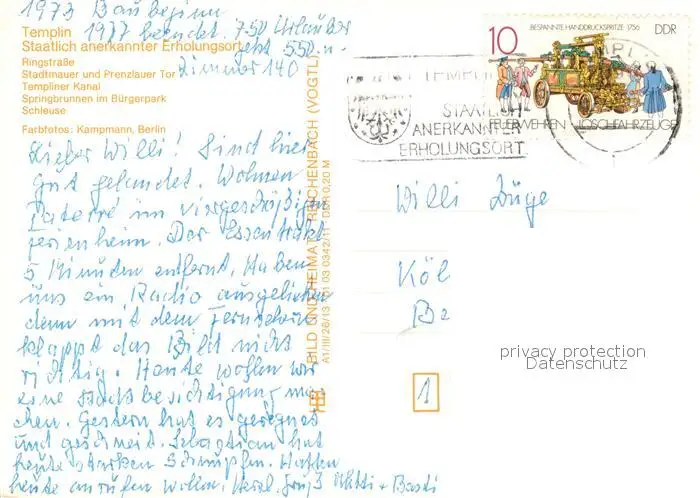 1973 Baubeginn
Templin 1977 beendet. 750 Urlauber
Staatlich anerkannter Erholungsort
Ringstraße
Stadtmauer und Prenzlauer Tor
Templiner Kanal
Springbrunnen im Bürgerpark
Schleuse
Zimmer 140
Farbfotos: Kampmann, Berlin
Lieber Willi! Sind hier
gut gelandet. Wohnen
Paterre im viergeschoßigen
ferienheim. Der Essentrakt
5 Minuten entfernt. Haben
uns ein Radio ausgeliehen
denn mit dem Fernsehen
klappt das Bild nicht
richtig. Heute wollen wir
eine stadtbesichtigung ma
chen. Gestern hat es geregnet
und geschneit. Sebastian hat
heute starken Schnupfen. Hatten
heute anrufen wollen. Herzl. Gruß Mutti + Basti
BILD UND HEIMAT REICHENBACH (VOGTL)
A1/III/26/13 01 03 0342/11 DDR 0,20 M
10
BESPANNTE HANDDRUCKSPRITZE 1756
DDR
FEUERWEHREN LÖSCHFAHRZEUGE
TEMPLIN
STAATLICH
ANERKANNTER
ERHOLUNGSORT
Willi Düge
Köl
1
privacy protection
Datenschutz